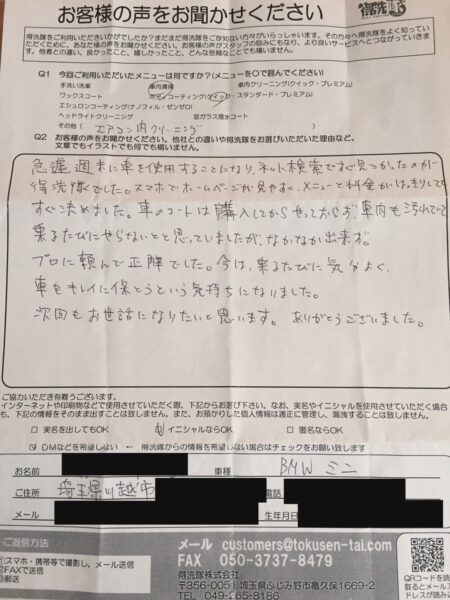 お客様の声をお聞かせください
得洗隊
得洗隊をご利用いただいかがでしたか？まだまだ得洗隊をご存知ない方々がいらっしゃいます。その方々へ得洗隊をよく知っていただくために、あなた様の声をお聞かせください。お客様の声がスタッフの励みにもなり、より良いサービスへとつながっていきます。
Q1 今回ご利用いただいたメニューは何ですか？(メニューを〇で囲んでください)
手洗い洗車 車内清掃 車内クリーニング(クイック・プレミアム)
ワックスコート ボディコーティング(クイック・スタンダード・プレミアム)
エシュロンコーティング(ナノフィル・ゼンゼロ)
ヘッドライトクリーニング 窓ガラス撥水コート
その他(エアコン内クリーニング
Q2 お客様の声をお聞かせください。他社との違いや得洗隊をお選びいただいた理由など、
文章でもイラストでも何でも構いません。
急遽週末に車を使用することになり、ネット検索ですぐ見つかったのが
得洗隊でした。スマホでホームページが見やすく、メニューと料金がはっきりしてて
すぐ決めました。車のコートは購入してからやっておらず、車内も汚れていて
乗るたびにやらないとと思っていましたが、なかなか出来ず。
プロに頼んで正解でした。今は、乗るたびに気分よく、
車をキレイに保とうという気持ちになりました。
次回もお世話になりたいと思います。 ありがとうございました。
ご協力いただき有難うございます。
インターネットや印刷物などで使用させていただく際、下記からお選び下さい。なお、実名やイニシャルを使用させていただく場合
も、下記の情報をそのまま出すことは致しません。また、お預かりした個人情報は適正に管理し、漏洩することは致しません。
実名を出してもOK イニシャルならOK 匿名ならOK
DMなどを希望しない ← 得洗隊からの情報を希望しない場合はチェックをお願い致します
お名前 車種 BMW ミニ
ご住所 埼玉県川越市 電話
メール 生年月日
ご返信方法
①スマホ・携帯等で撮影し、メール送信
②FAXで送信
③郵送
メール customers@tokusen-tai.com
FAX 050-3737-8479
得洗隊株式会社
〒356-0051 埼玉県ふじみ野市亀久保1669-2
TEL 049-265-8186
QRコードを読
取るとメールア
ドレスが読み込